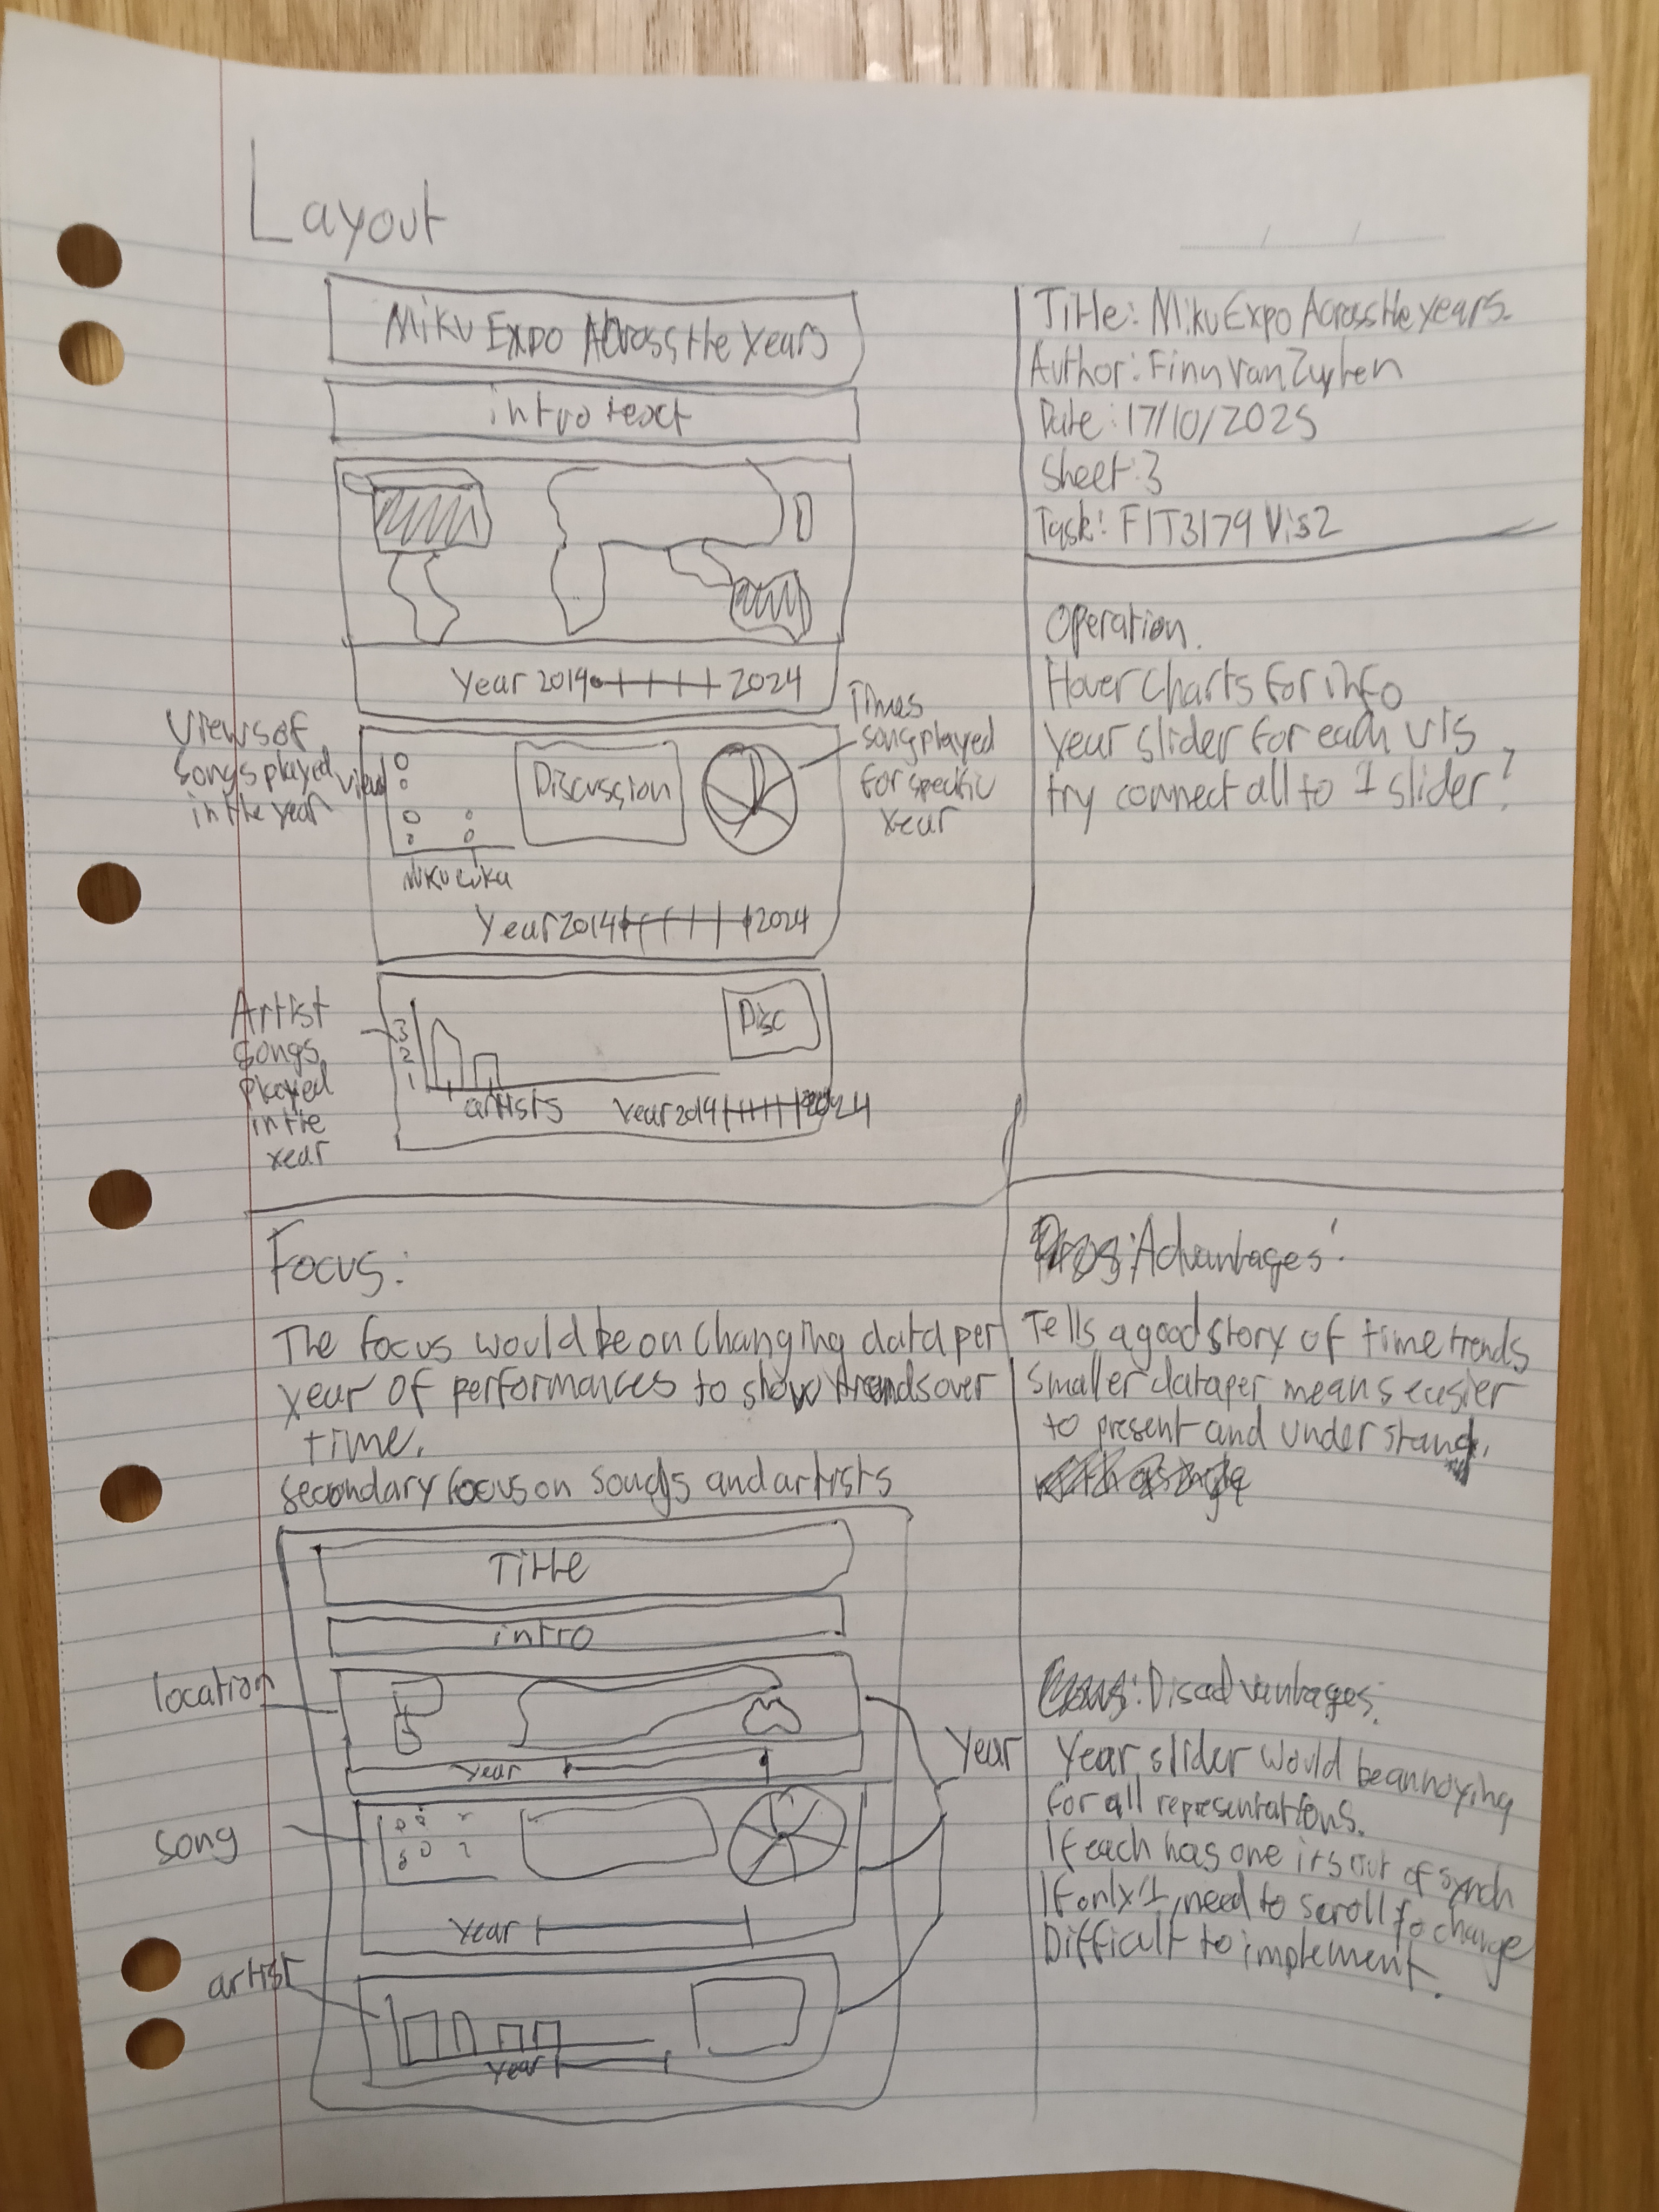 Layout
Miku Expo Across the Years
intro text
Year 2014 2024
Views of
songs played
in the year
views
Miku Luka
Discussion
Times
song played
for specific
year
Year 2014 2024
Artist
songs
played
in the
year
3
2
1
artists
Disc
Year 2014 2024
Title: Miku Expo Across the years.
Author: Finn Van Zuylen
Date: 17/10/2025
Sheet: 3
Task: FIT3179 Vis2
Operation.
Hover charts for info
year slider for each vis
try connect all to 1 slider?
Focus:
The focus would be on changing data per
year of performances to show trends over
time.
secondary focus on songs and artists
Title
intro
location
year
song
year
artist
year
Year
Advantages:
Tells a good story of time trends
Smaller data per means easier
to present and understand.
Disadvantages:
Year slider would be annoying
for all representations.
If each has one its out of synch
If only 1, need to scroll to change
Difficult to implement.